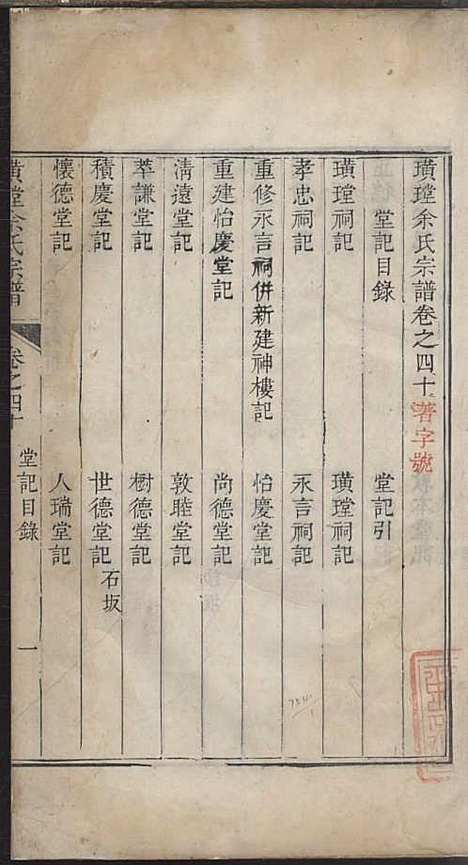 璜瑝余氏宗譜卷之四十 著字號
堂記目錄 堂記引
璜瑝祠記 璜瑝祠記
孝忠祠記 永言祠記
重修永言祠併新建神樓記 怡慶堂記
重建怡慶堂記 尚德堂記
清遠堂記 敦睦堂記
萃謙堂記 樹德堂記
積慶堂記 世德堂記 石坂
懷德堂記 人瑞堂記
璜瑝余氏宗譜 卷之四十 堂記目錄 一